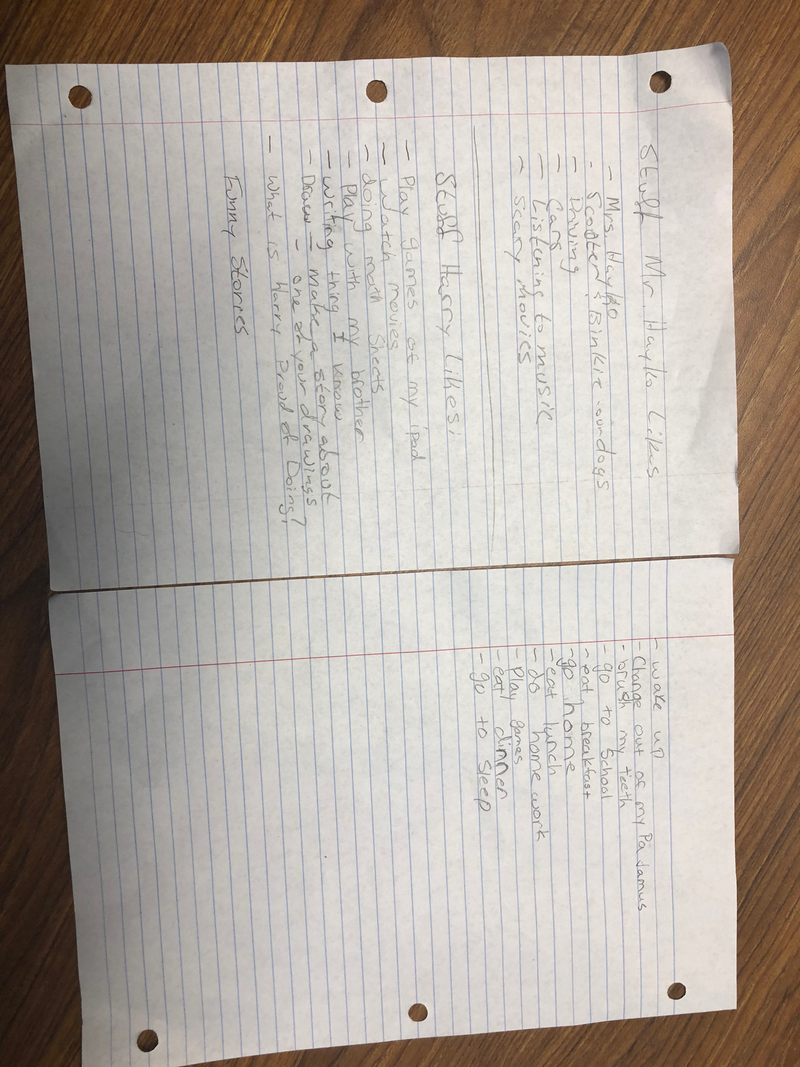 Stuff Mr. Hayko Likes
- Mrs. Hayko
- Scooter & Binkie - our dogs
- Driving
- Cars
- Listening to music
- Scary movies
Stuff Harry Likes:
- Play games of my ipad
- Watch movies
- doing math Sheets
- Play with my brother
- writing thing I know
- Draw - make a story about
- one of your drawings
- What is Harry Proud of Doing?
Funny Storres
- wake up
- Change out of my PaJamus
- brush my teeth
- go to School
- eat breakfast
- go home
- eat lunch
- do home work
- Play games
- eat dinner
- go to Sleep